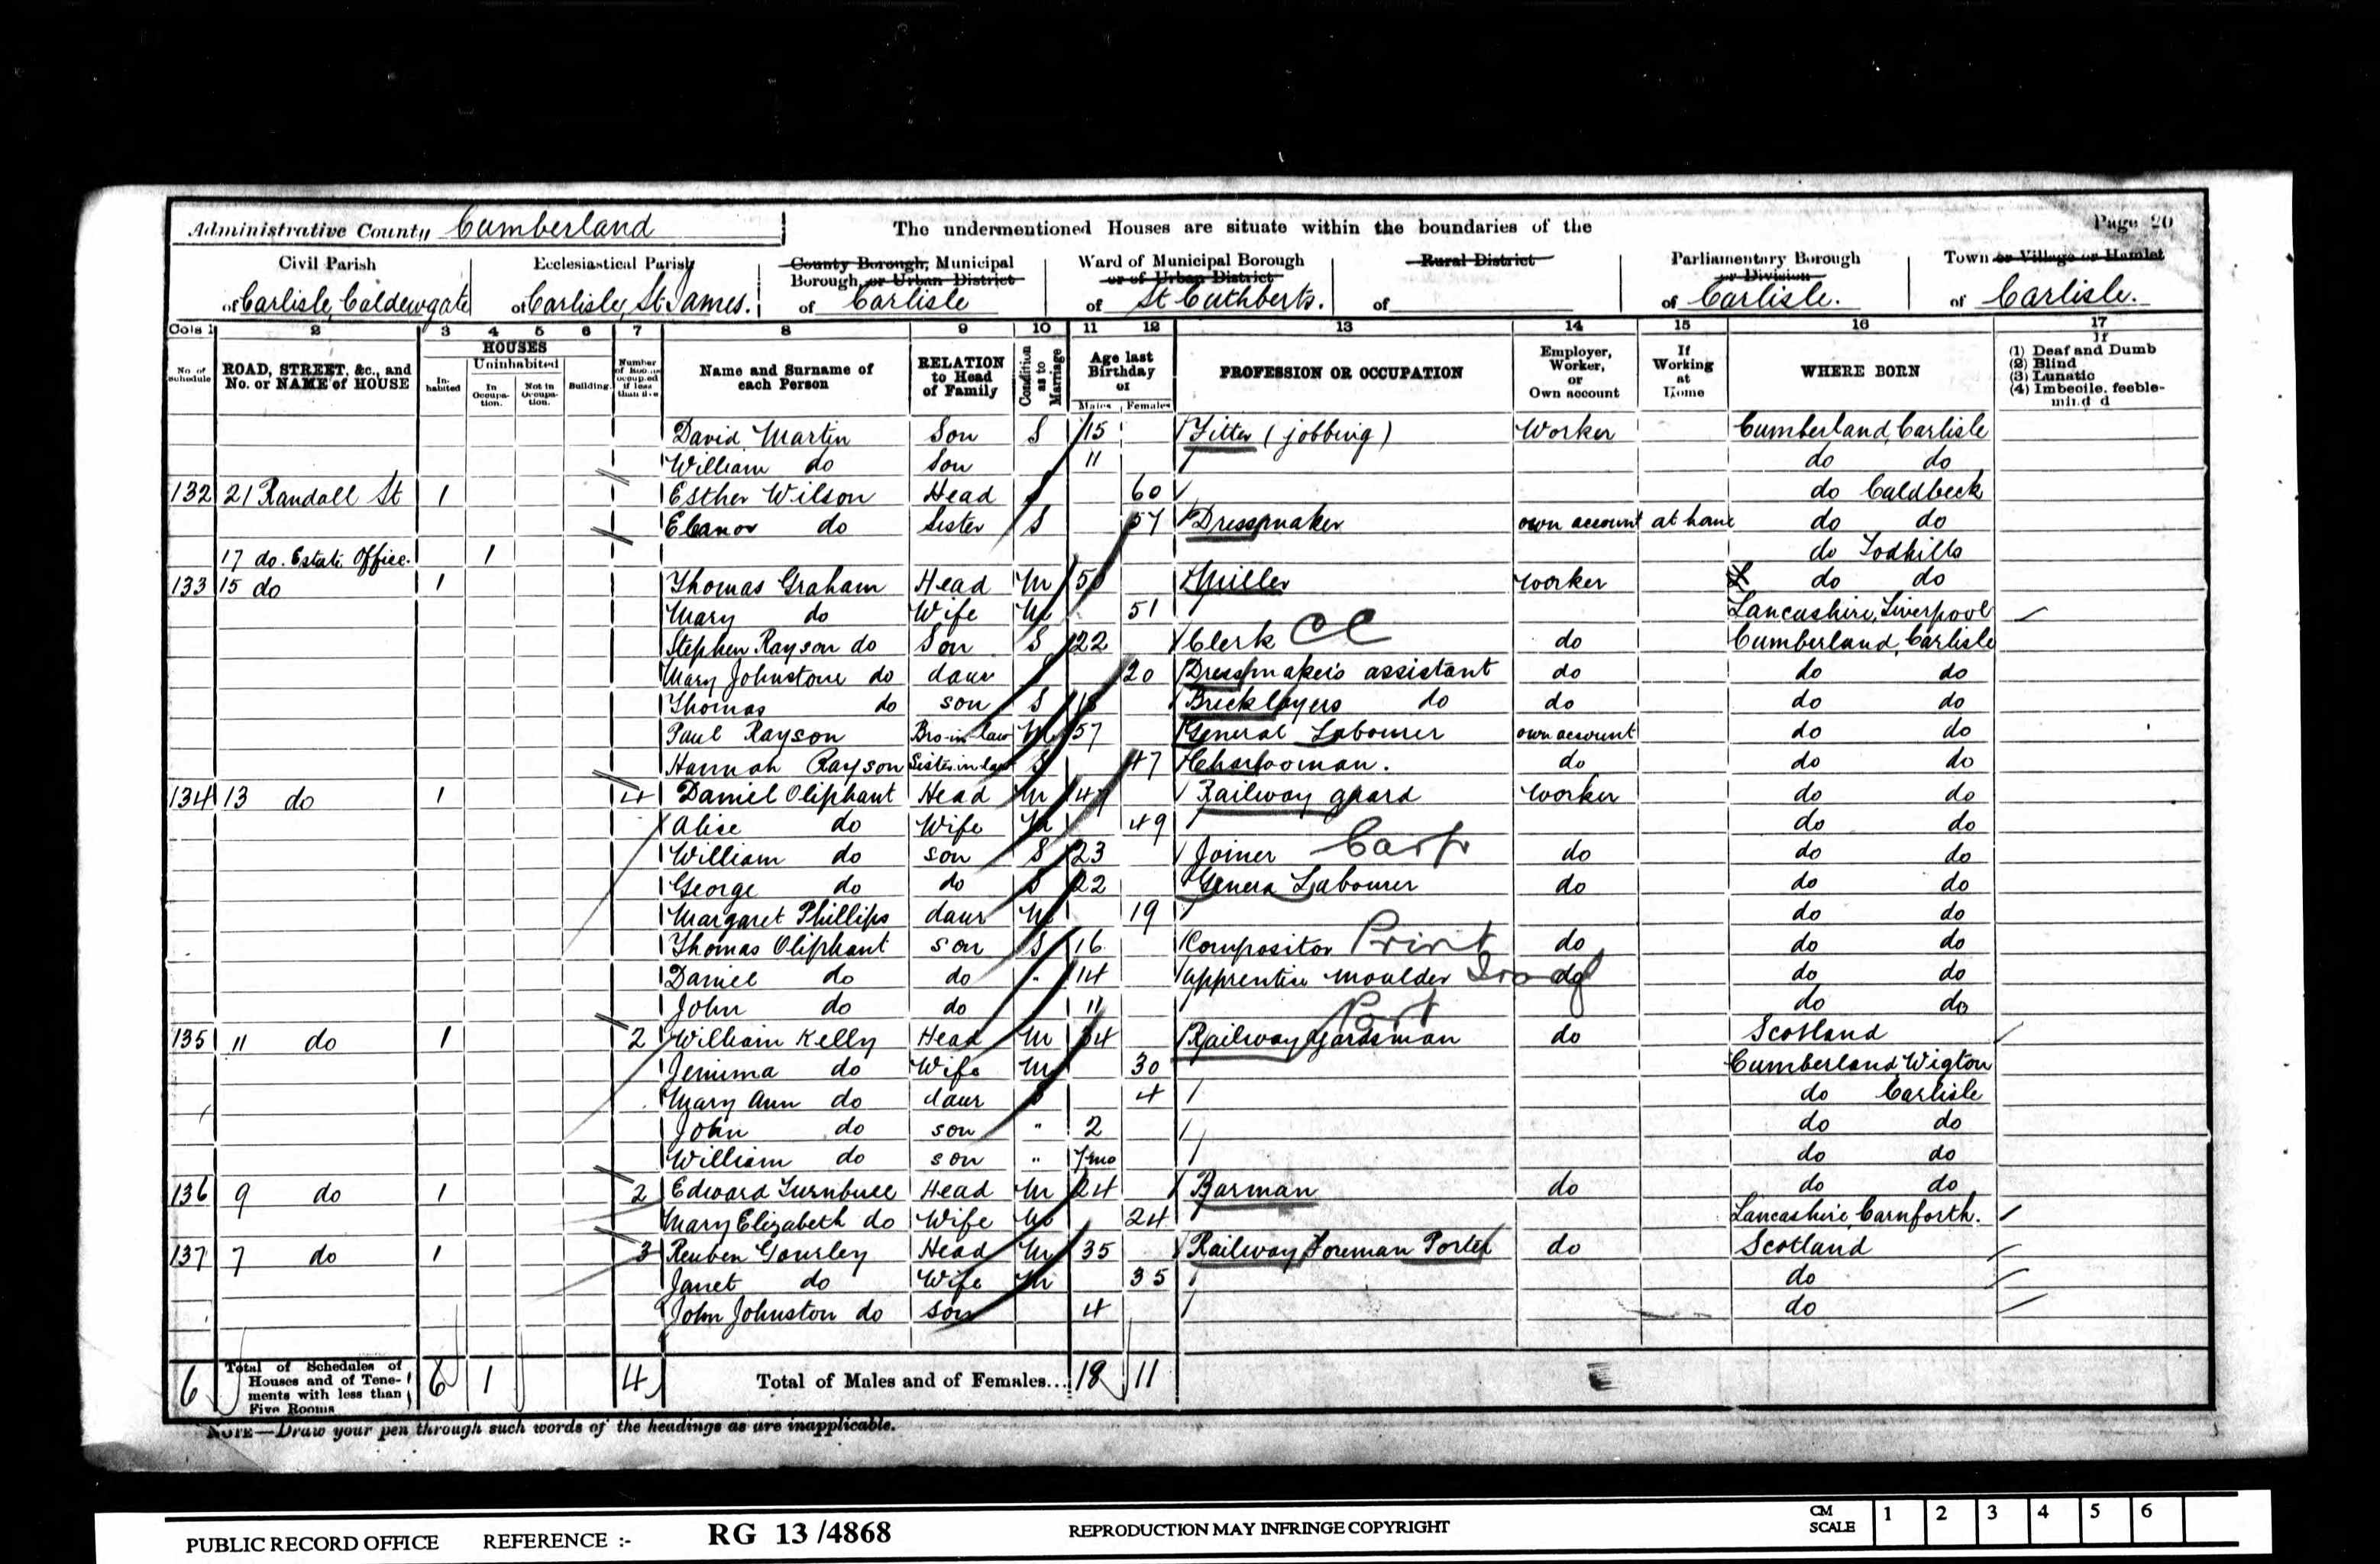 Administrative County Cumberland The undermentioned Houses are situate within the boundaries of the Page 20
Civil Parish Ecclesiastical Parish County Borough, Municipal Borough, or Urban District Ward of Municipal Borough or of Urban District Rural District Parliamentary Borough or Division Town or Village or Hamlet
of Carlisle, Caldewgate of Carlisle, St James. of Carlisle of St Cuthberts. of of Carlisle. of Carlisle.
Cols 1 2 3 4 5 6 7 8 9 10 11 12 13 14 15 16 17
No. of Schedule ROAD, STREET, &c., and No. or NAME of HOUSE HOUSES Inhabited Uninhabited In Occupation. Not in Occupation. Building. Number of Rooms occupied if less than five Name and Surname of each Person RELATION to Head of Family Condition as to Marriage Age last Birthday of Males Females PROFESSION OR OCCUPATION Employer, Worker, or Own account If Working at Home WHERE BORN If (1) Deaf and Dumb (2) Blind (3) Lunatic (4) Imbecile, feeble-minded
David Martin Son S 15 Fitter (jobbing) Worker Cumberland, Carlisle
William do Son 11 do do
132 21 Randall St 1 Esther Wilson Head S 60 do Caldbeck
Eleanor do Sister S 57 Dressmaker own account at home do do
17 do. Estate Office. 1 do Todhills
133 15 do 1 Thomas Graham Head M Miller worker do do
Mary do Wife M 51 Lancashire, Liverpool
Stephen Rayson do Son S 22 Clerk CC do Cumberland, Carlisle
Mary Johnstone do daur S 20 Dressmaker's assistant do do do
Thomas do son S 18 Bricklayers do do do do
Paul Rayson Bro-in-law 57 General Labourer own account do do
Hannah Rayson Sister-in-law S 47 Charwoman. do do do
134 13 do 1 4 Daniel Oliphant Head M Railway guard Worker do do
Alice do Wife M 49 do do
William do son S 23 Joiner Carpr do do do
George do do S 22 Genera Labourer do do do
Margaret Phillips daur M 19 do do
Thomas Oliphant son S 16 Compositor Print do do do
Daniel do do " 14 apprentice moulder Iron do do do
John do do 11 do do
135 11 do 1 2 William Kelly Head M 34 Railway Yardsman Port do Scotland
Jemima do Wife M 30 Cumberland Wigton
Mary Ann do daur S 4 do Carlisle
John do son " 2 do do
William do son " 7mo do do
136 9 do 1 2 Edward Turnbull Head M 24 Barman do do do
Mary Elizabeth do Wife M 24 Lancashire, Carnforth.
137 7 do 1 3 Reuben Gourley Head M 35 Railway Foreman Porter do Scotland
Janet do Wife M 35 do
John Johnston do son 4 do
6 Total of Schedules of Houses and of Tenements with less than Five Rooms 6 1 4 Total of Males and of Females... 18 11
NOTE—Draw your pen through such words of the headings as are inapplicable.
PUBLIC RECORD OFFICE REFERENCE :- RG 13/4868 REPRODUCTION MAY INFRINGE COPYRIGHT CM SCALE 1 2 3 4 5 6